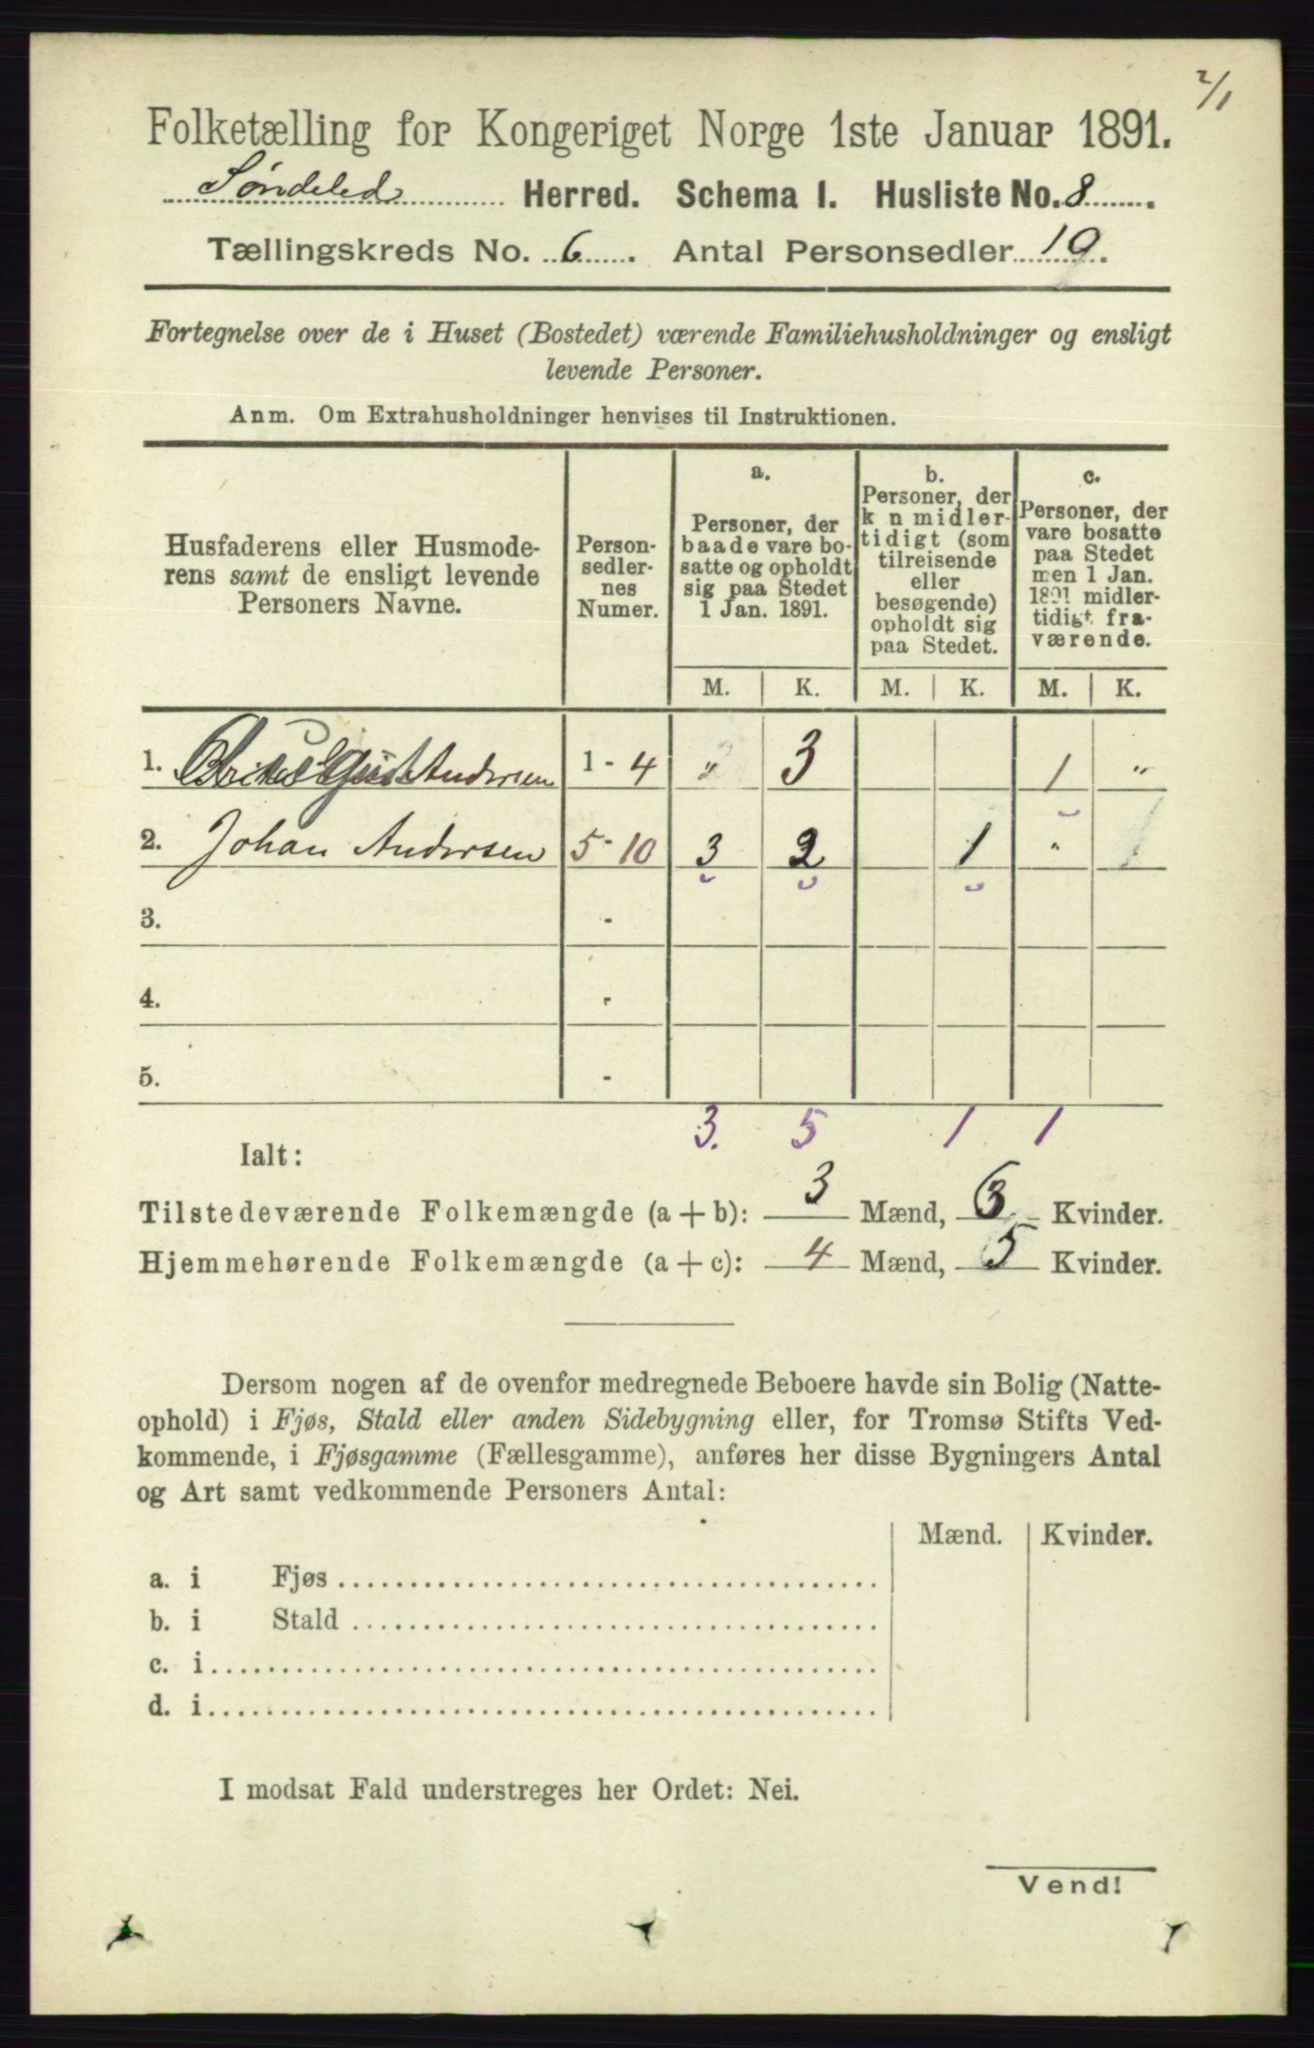 2/1
Folketælling for Kongeriget Norge 1ste Januar 1891.
Søndeled Herred. Schema I. Husliste No. 8
Tællingskreds No. 6. Antal Personsedler 10.
Fortegnelse over de i Huset (Bostedet) værende Familiehusholdninger og ensligt
levende Personer.
Anm. Om Extrahusholdninger henvises til Instruktionen.
Husfaderens eller Husmode-
rens samt de ensligt levende
Personers Navne.
Person-
sedler-
nes
Numer.
a.
Personer, der
baade vare bo-
satte og opholdt
sig paa Stedet
1 Jan. 1891.
b.
Personer, der
k n midler-
tidigt (som
tilreisende
eller
besøgende)
opholdt sig
paa Stedet.
c.
Personer, der
vare bosatte
paa Stedet
men 1 Jan.
1891 midler-
tidigt fra-
værende.
M. K. M. K. M. K.
1. Andersen 1 - 4 " 3 1 "
2. Johan Andersen 5 - 10 3 2 1 "
3. -
4. -
5. -
3. 5 1 1
Ialt:
Tilstedeværende Folkemængde (a + b): 3 Mænd, 6 Kvinder.
Hjemmehørende Folkemængde (a + c): 4 Mænd, 5 Kvinder.
Dersom nogen af de ovenfor medregnede Beboere havde sin Bolig (Natte-
ophold) i Fjøs, Stald eller anden Sidebygning eller, for Tromsø Stifts Ved-
kommende, i Fjøsgamme (Fællesgamme), anføres her disse Bygningers Antal
og Art samt vedkommende Personers Antal:
Mænd. Kvinder.
a. i Fjøs
b. i Stald
c. i
d. i
I modsat Fald understreges her Ordet: Nei.
Vend!